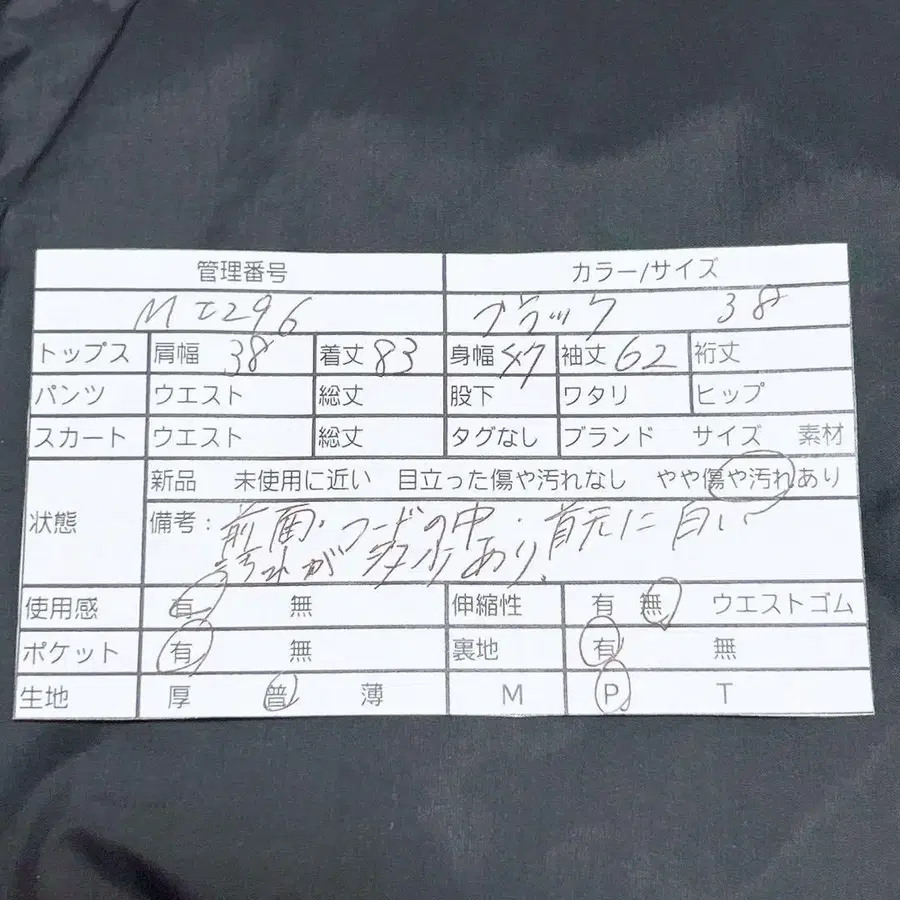 管理番号 カラー/サイズ
MI296 ブラック 38
トップス 肩幅 38 着丈 83 身幅 47 袖丈 62 裄丈
パンツ ウエスト 総丈 股下 ワタリ ヒップ
スカート ウエスト 総丈 タグなし ブランド サイズ 素材
新品 未使用に近い 目立った傷や汚れなし やや傷や汚れあり
状態 備考: 前面・フードの中・首元に白い
汚れが多少あり.
使用感 有 無 伸縮性 有 無 ウエストゴム
ポケット 有 無 裏地 有 無
生地 厚 普 薄 M P T